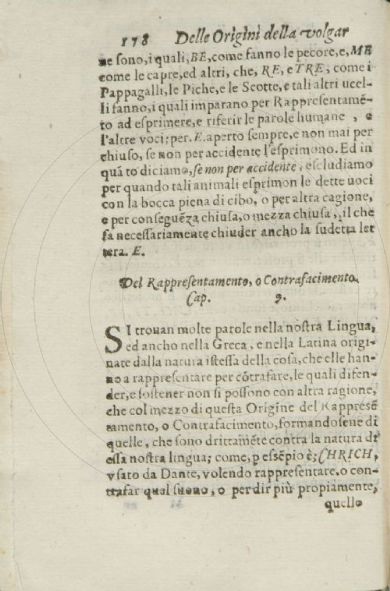 178 Delle Origini della volgar
ne sono, i quali, BE, come fanno le pecore, e, ME
come le capre, ed altri, che, RE, e TRE, come i
Pappagalli, le Piche, e le Scotte, e tali altri ucel-
li fanno, i quali imparano per Rappresentamẽ-
to ad esprimere, e riferir le parole humane, e
l'altre voci; per. E. aperto sempre, e non mai per
chiuso, se non per accidente l'esprimono. Ed in
quãto diciamo, se non per accidente, escludiamo
per quando tali animali esprimon le dette uoci
con la bocca piena di cibo, o per altra cagione,
e per consegueẽza chiusa, o mezza chiusa, il che
fa necessariamente chiuder ancho la sudetta let
tera. E.
Del Rappresentamento, o Contrafacimento.
Cap. 9.
SI trouan molte parole nella nostra Lingua,
ed ancho nella Greca, e nella Latina origi-
nate dalla natura istessa della cosa, che elle han-
no a rappresentare per cõtrafare, le quali difen-
der, e sostener non si possono con altra ragione,
che col mezzo di questa Origine del Rappresẽ
tamento, o Contrafacimento, formandosene di
quelle, che sono drittamẽte contra la natura di
essa nostra lingua; come, p essẽpio è; CHRICH,
vsato da Dante, volendo rappresentare, o con-
trafar qual suono, o per dir più propiamente,
quello